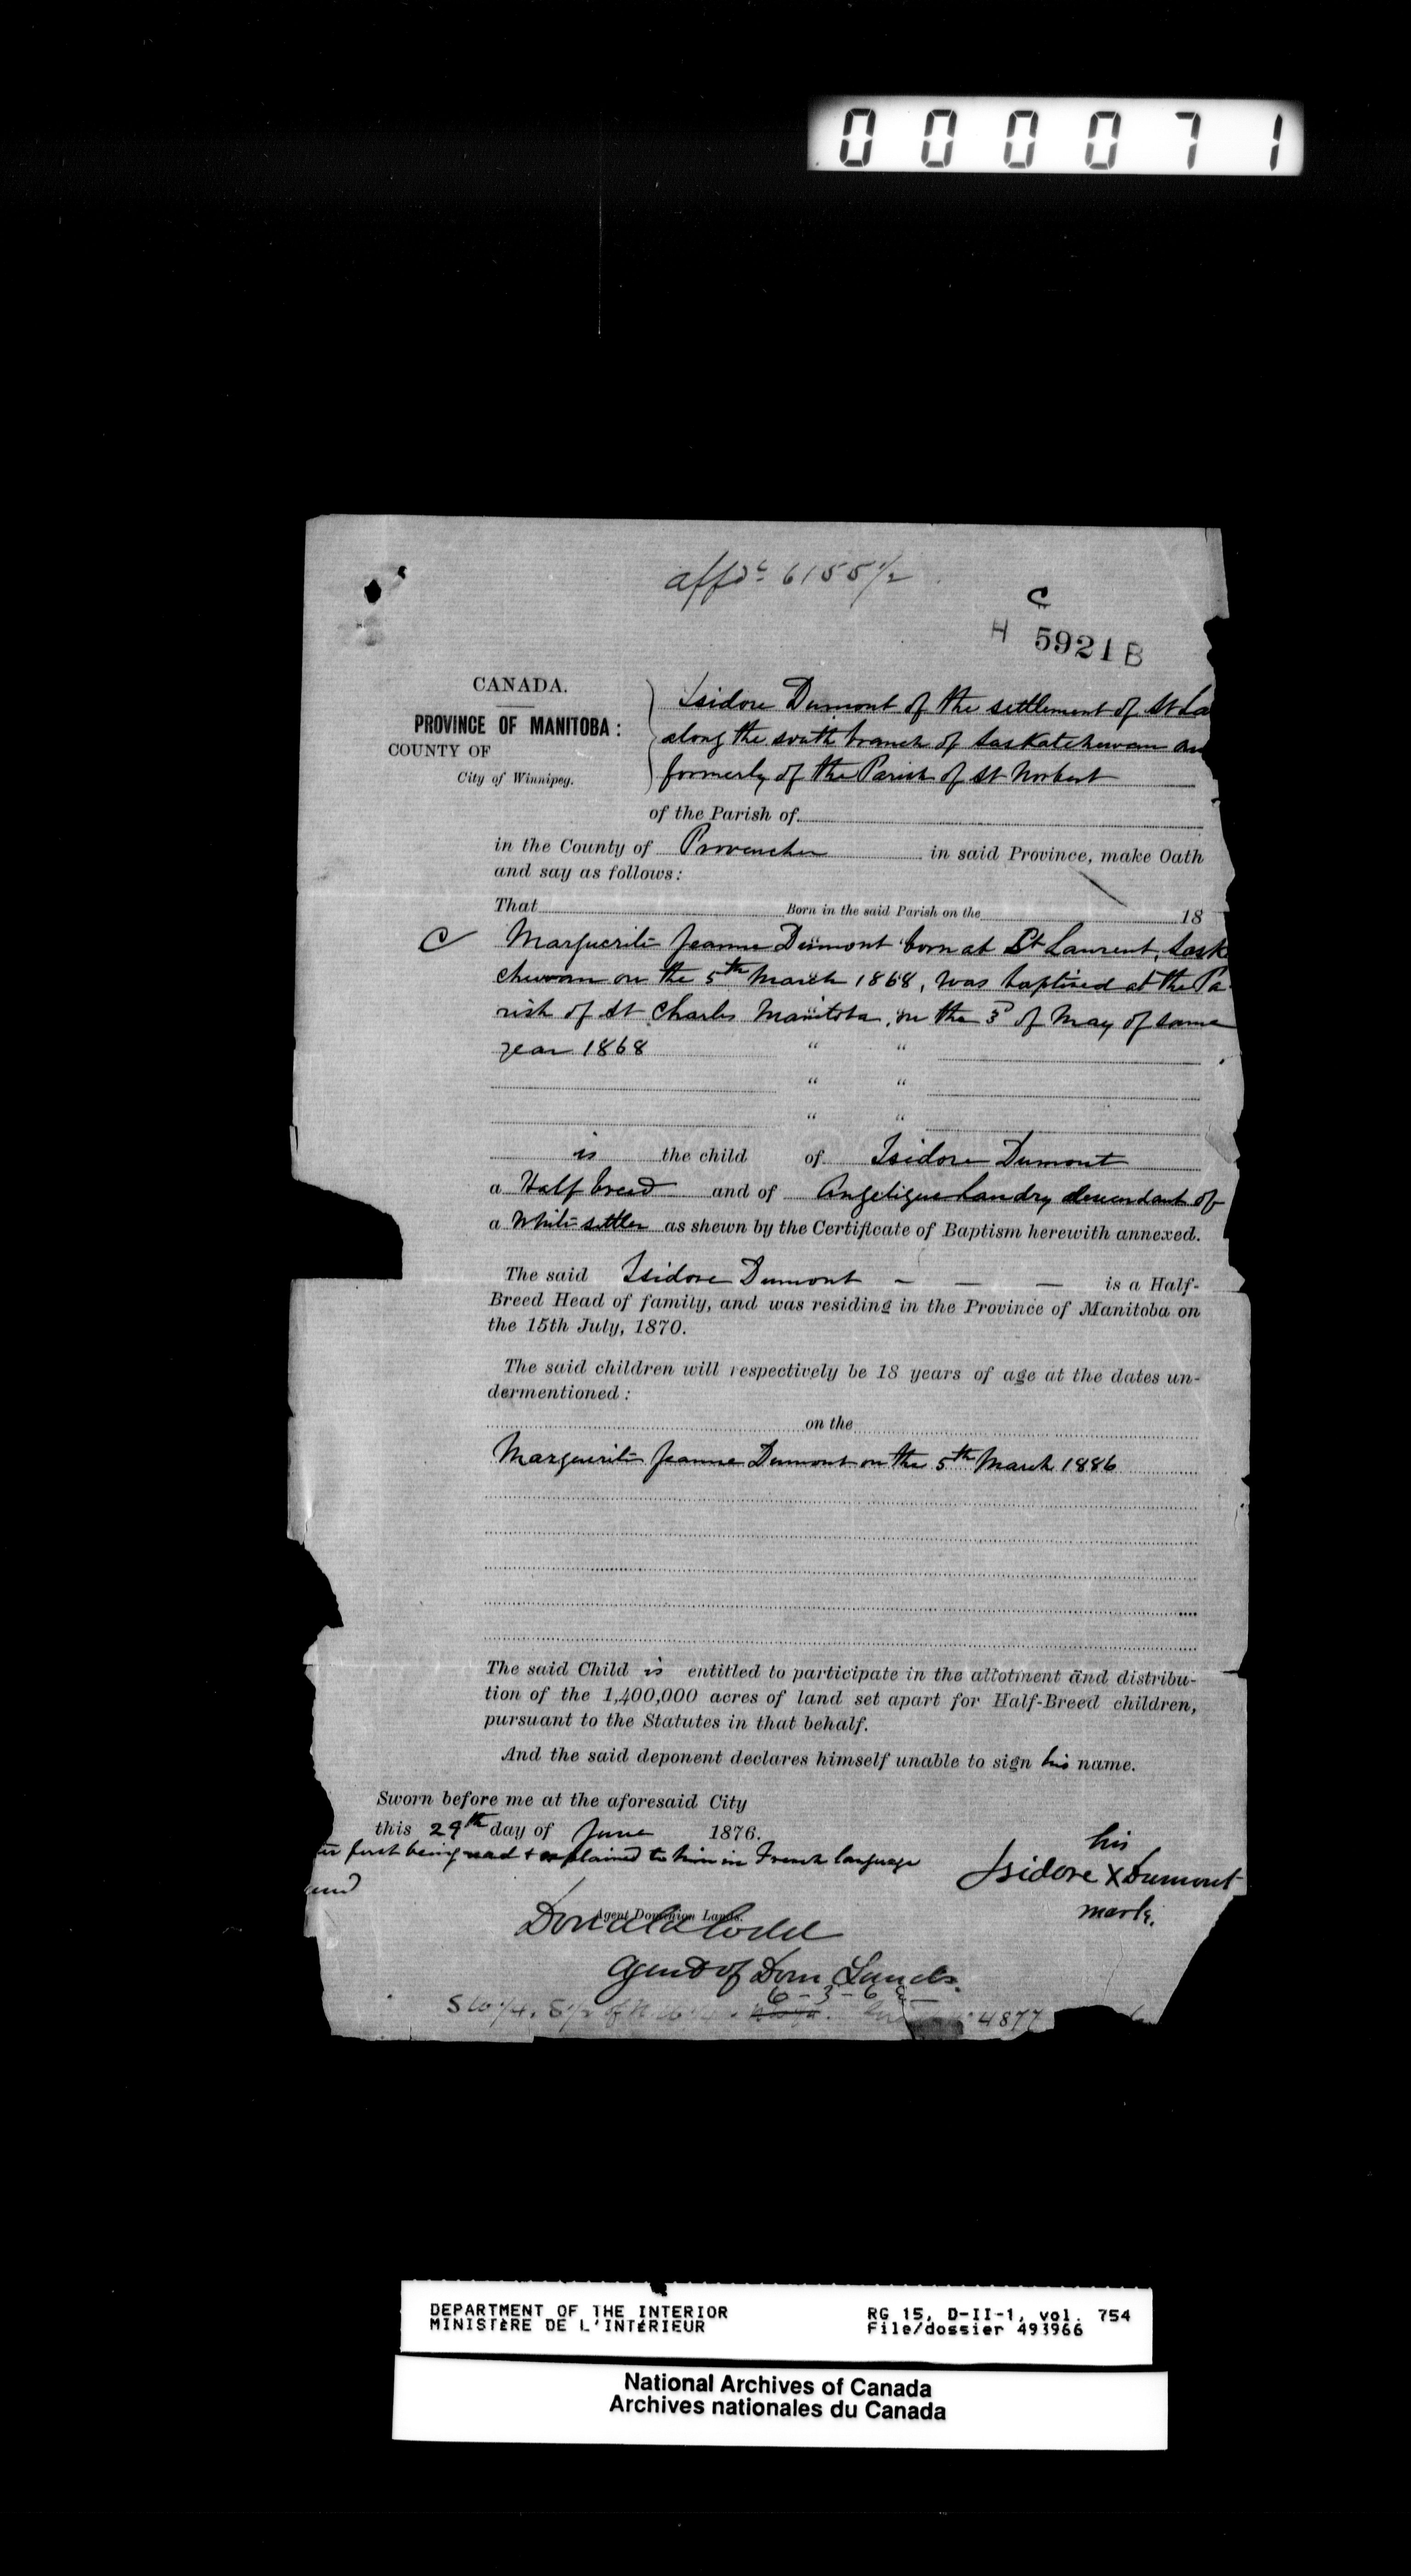 000071
affdt 6155 1/2
C
H 5921 B
CANADA.
PROVINCE OF MANITOBA:
COUNTY OF
City of Winnipeg.
Isidore Dumont of the settlement of St La
along the south branch of Saskatchewan an
formerly of the Parish of St Norbert
of the Parish of
in the County of Provencher in said Province, make Oath
and say as follows:
That Born in the said Parish on the 18
C Marguerite Jeanne Dumont born at St Laurent, Sask
chewan on the 5th March 1868, was baptised at the Pa
rish of St Charles Manitoba, on the 3d of May of same
year 1868 " "
" "
" "
is the child of Isidore Dumont
a Half breed and of Angelique Landry descendant of
a White settler as shewn by the Certificate of Baptism herewith annexed.
The said Isidore Dumont - - - is a Half-
Breed Head of family, and was residing in the Province of Manitoba on
the 15th July, 1870.
The said children will respectively be 18 years of age at the dates un-
dermentioned:
on the
Marguerite Jeanne Dumont on the 5th March 1886
The said Child is entitled to participate in the allotment and distribu-
tion of the 1,400,000 acres of land set apart for Half-Breed children,
pursuant to the Statutes in that behalf.
And the said deponent declares himself unable to sign his name.
Sworn before me at the aforesaid City
this 29th day of June 1876.
first being read & explained to him in French language
his
Isidore X Dumont
mark.
Agent Dominion Lands.
Donald Codd
Agent of Dom Lands.
6-3-6 E
S W 1/4, S 1/2 of N W 1/4 4877
DEPARTMENT OF THE INTERIOR
MINISTÈRE DE L'INTÉRIEUR
RG 15, D-II-1, vol. 754
File/dossier 493966
National Archives of Canada
Archives nationales du Canada